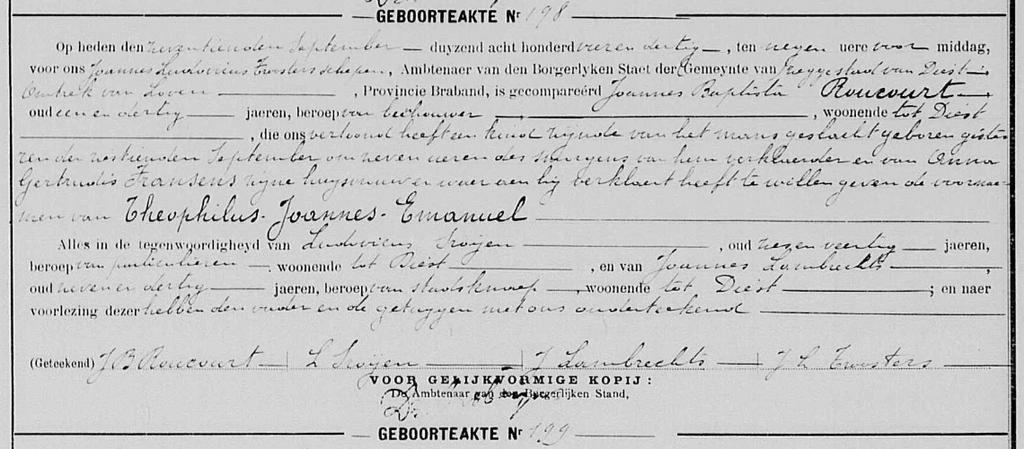 GEBOORTEAKTE Nr 198
Op heden den zeventienden September duyzend acht honderd vier en dertig, ten negen uere voor middag,
voor ons Joannes Ludovicus Troosters schepen, Ambtenaer van den Borgerlyken Staet der Gemeynte van Diest
Omtrek van Loven, Provincie Braband, is gecompareérd Joannes Baptista Roucourt
oud een en dertig jaeren, beroep van, woonende tot Diest
, die ons vertoond heeft een kind zynde van het mans geslacht geboren giste-
ren den zestienden September om zeven ueren des morgens van hem verklaerder en van Anna
Gertrudis Fransens zyne huysvrouw en waer aen hy verklaert heeft te willen geven de voornae-
men van Theophilus-Joannes-Emanuel
Alles in de tegenwoordigheyd van Ludovicus, oud veertig jaeren,
beroep van particulieren, woonende tot Diest, en van Joannes Lambrechts,
oud zeven en dertig jaeren, beroep van stadsknaep, woonende tot Diest; en naer
voorlezing dezer hebben den vader en de getuygen met ons onderteekend
(Geteekend) J B Roucourt | L | J Lambrechts | J L Troosters
VOOR GELIJKVORMIGE KOPIJ:
De Ambtenaar van den Burgerlijken Stand,
GEBOORTEAKTE Nr 199